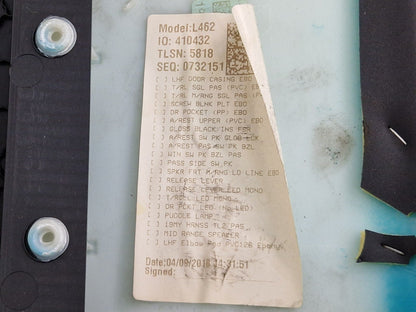 Model:L462
IO: 410432
TLSN: 5818
SEQ: 0732151
[ ] LHF DOOR CASING EBO
[ ] T/RL SGL PAS (PVC) EB
[ ] T/RL M/RNG SGL PAS (P
[ ] SCREW BLNK PLT EBO
[ ] DR POCKET (PP) EBO
[ ] A/REST UPPER (PVC) EBO
[ ] GLOSS BLACK/INS FSR
[ ] A/REST SW PK GLOS BCK
[ ] A/REST PAS/SW PK BZL
[ ] WIN SW PK BZL PAS
[ ] PASS SIDE SW PK
[ ] SPKR FRT M/RNG LO LINE EBO
[ ] RELEASE LEVER
[ ] RELEASE LEVER LED MONO
[ ] T/RL LED MONO
[ ] DR PCKT LED (No LED)
[ ] PUDDLE LAMP
[ ] 19MY HRNSS TL2 PAS
[ ] MID RANGE SPEAKER
[ ] LHF Elbow Pad PVC126 Ebony
Date:04/09/2018 14:31:51
Signed: